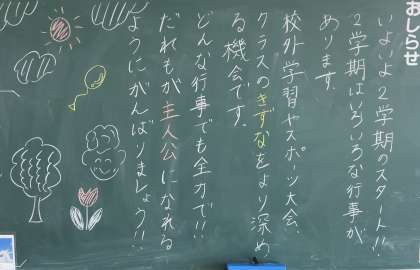 おしらせ
いよいよ2学期のスタート!!
2学期はいろいろな行事が
あります。
校外学習やスポーツ大会、
クラスのきずなをより深め
る機会です。
どんな行事でも全力で!!
だれもが主人公になれる
ようにがんばりましょう!!